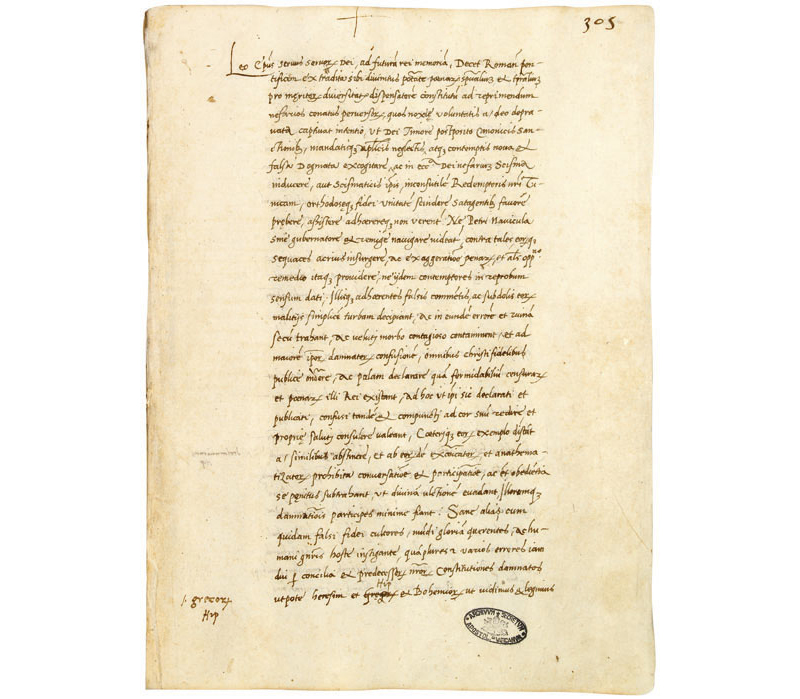 305
Leo Ep̄us servus servoꝝ Dei, ad futurā rei memoriā, Decet Romanū pon-
tificem ex tradita sibi divinitus potāte pœnaꝝ spūaliuꝫ et tp̄raliuꝫ
pro meritoꝝ diversitate dispensatorē constitutū ad reprimendum
nefarios conatus perversoꝝ, quos noxiē voluntatis adeo depra-
vata captivat intentio, ut Dei timore postposito Canonicis San-
ctionibꝫ, mandatisqꝫ aplicis neglectis, atqꝫ contemptis nova et
falsa Dogmata excogitare, ac in ecc̄a Dei nefariuꝫ Scisma
inducere, aut Scismaticis ip̄is, inconsutilē Redemptoris nr̄i Tu-
nicam, orthodoxęqꝫ fidei unitatē scindere satagentibꝫ favorē
pręberē, assistere adhærereqꝫ non verent̄ Ne Petri Navicula
sine gubernatore et remige navigare videat̄, contra tales eorqꝫ
sequaces acrius insurgere, Ac exaggeratiōe penaꝝ, et al̄s opp̄no
remedio itaqꝫ providere, ne ijdem contemptores in reprobum
sensum dati, Illisqꝫ adhærentes falsis commētis, ac subdolis eoꝝ
malitijs simplicē turbam decipiant, Ac in eundē errorē et ruinā
secū trahant, Ac veluti morbo contagioso contaminent, et ad
maiorē ip̄oꝝ damnatoꝝ confusionē, omnibus christifidelibus
publice ondere, Ac palam declarare quā formidabiliū censuraꝝ
et pœnaꝝ illi Rei existant, Ad hoc ut ip̄i sic declarati et
publicati, confusi tandē et compuncti ad cor suū redire et
proprię saluti consulere valeant, Cœteriqꝫ eoꝝ exemplo discāt
a similibus abstinere, et ab eoꝝ de excōicatoꝝ et anathema-
tizatoꝝ prohibita conversatiōe et participatiōe, ac et obedientia
se penitus subtrahant, ut divinā ultionē evadant Illorumqꝫ
damnatiōis participes minime fiant. Sane alias cum
quidam falsi fidei cultores, mūdi gloriā querentes, Ac hu-
mani gn̄ris hoste instigante, quāplures et varios errores iam
dui ꝑ concilia et predecessoꝝ nr̄oꝝ Constitutiones damnatos
utpote heresim et Hus et Bohemioꝝ ut vidimus et legimus
grecoꝝ
ARCHIVVM SECRETVM
APOSTOL. VATICANVM